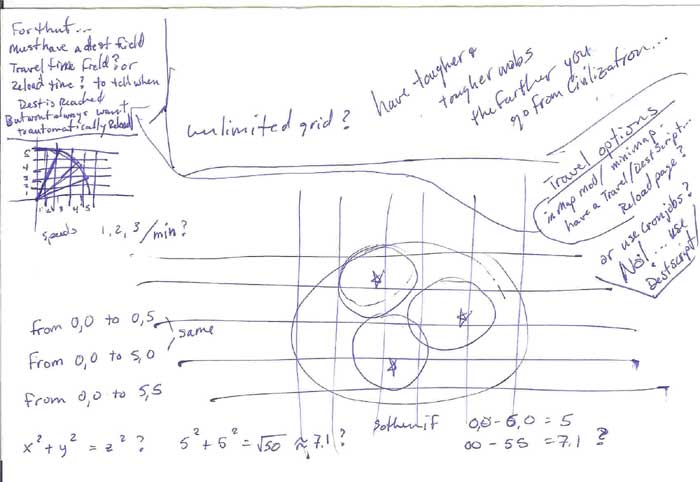 For that...
Must have a dest field
Travel time field? or
Reload time? to tell when
Dest is Reached
But wont always want
to automatically Reload
5
4
3
2
1
1 2 3 4 5
speeds 1, 2, 3/min?
unlimited grid?
have tougher &
tougher mobs
the farther you
go from Civilization...
Travel options
in Map mod/minimap
have a Travel/Dest Script...
Reload page?
or use Cronjobs?
No! ... use
Destscript!
from 0,0 to 0,5
same
From 0,0 to 5,0
from 0,0 to 5,5
x² + y² = z² ?
5² + 5² = √50 ≈ 7.1 ?
So then if 0,0 - 5,0 = 5
00 - 55 = 7.1 ?